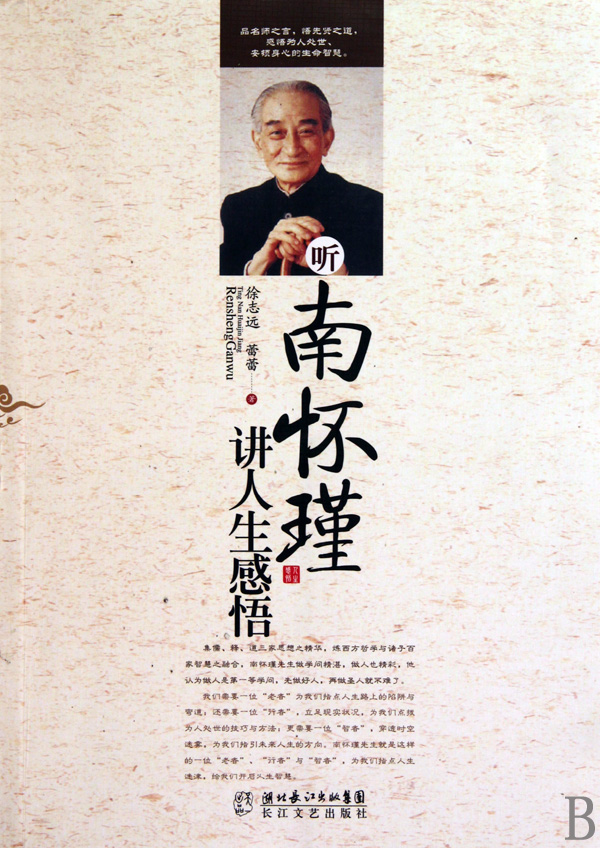 品名师之言，悟先贤之道，
感悟为人处世、
安顿身心的生命智慧。
听
南怀瑾
讲人生感悟
徐志远 蕾蕾………著
Ting Nan Huaijin Jiang
RenshengGanwu
人生
感悟
集儒、释、道三家思想之精华，炼西方哲学与诸子百
家智慧之融合，南怀瑾先生做学问精湛，做人也精彩，他
认为做人是第一等学问，先做好人，再做圣人就不难了。
我们需要一位“老者”为我们指点人生路上的陷阱与
弯道；还需要一位“行者”，立足现实状况，为我们点拨
为人处世的技巧与方法；更需要一位“智者”，穿透时空
迷雾，为我们指引未来人生的方向。南怀瑾先生就是这样
的一位“老者”、“行者”与“智者”，为我们指点人生
迷津，给我们开启人生智慧。
湖北长江出版集团
长江文艺出版社
B